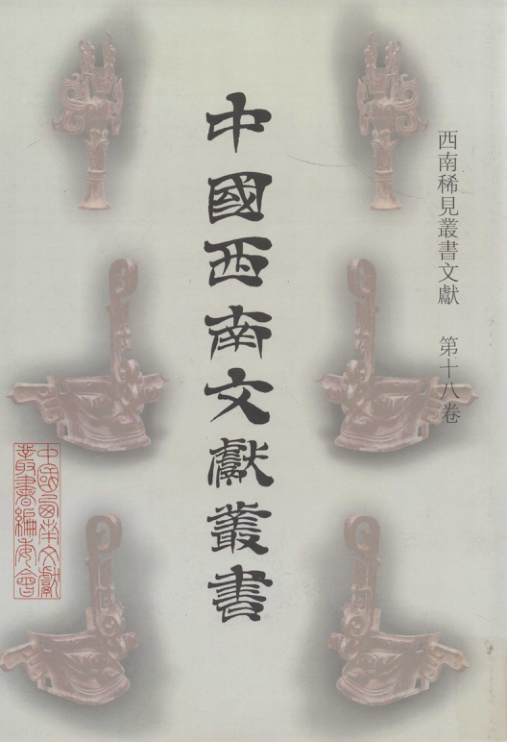 西南稀見叢書文獻 第十八卷
中國西南文獻叢書
中國西南文獻
叢書編委會